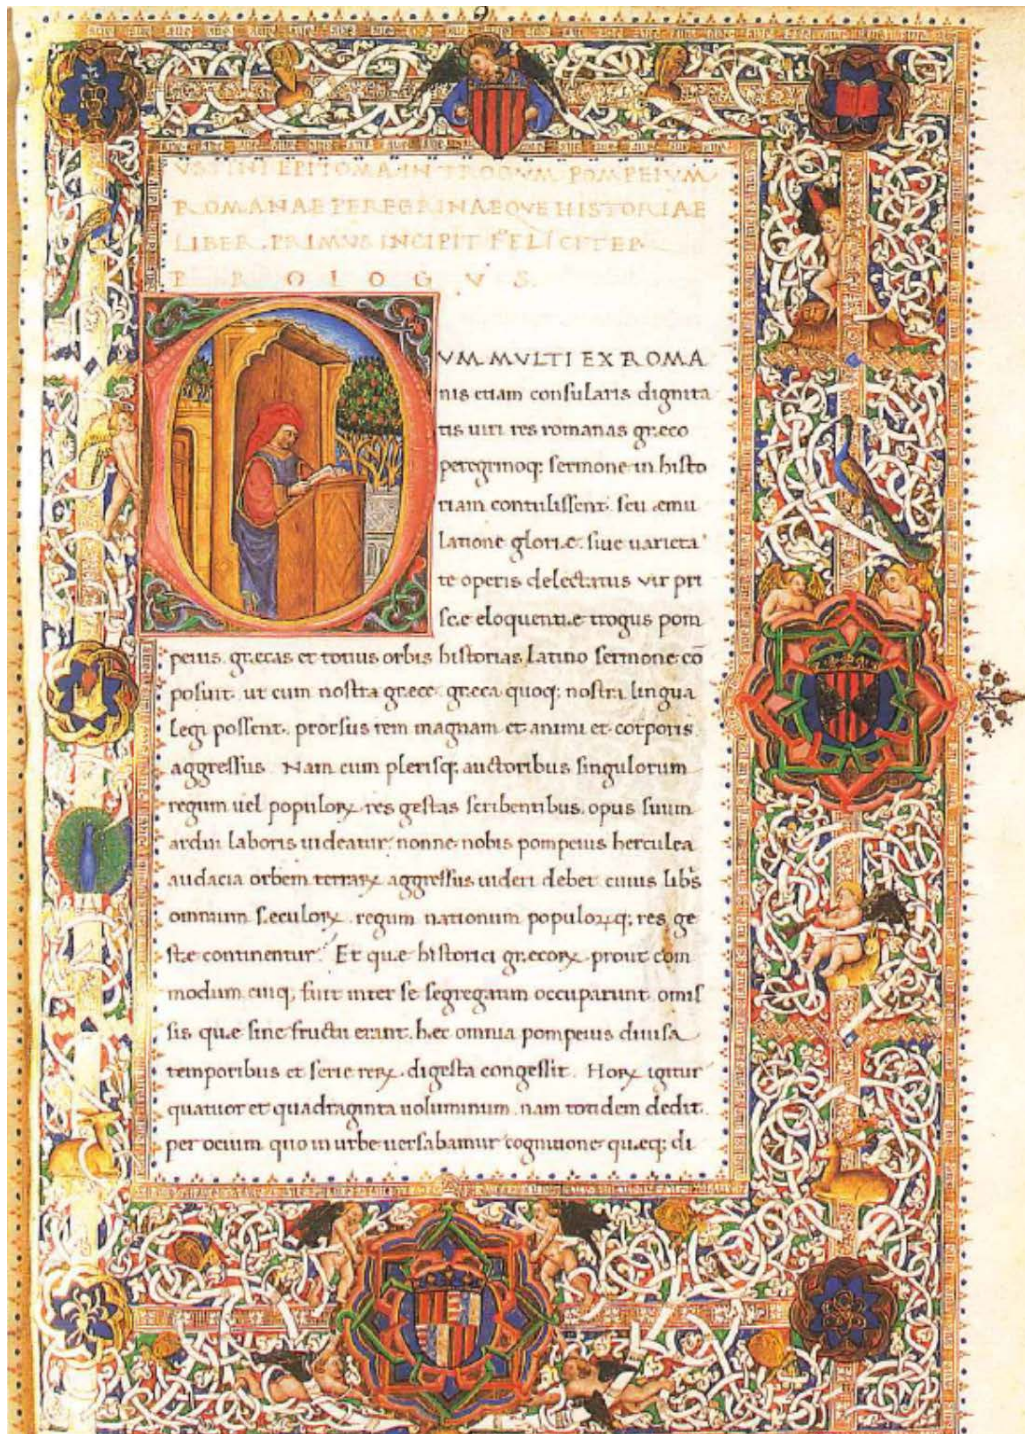 VSTINI EPITOMA IN TROGVM POMPEIVM
ROMANAE PEREGRINAEQVE HISTORIAE
LIBER. PRIMVS INCIPIT FELICITER.
PROLOGVS.
VM MVLTI EX ROMA
nis etiam consularis dignita
tis uiri res romanas græco
peregrinoq; sermone in histo
riam contulissent. seu æmu
latione gloriæ. siue uarieta
te operis delectatus vir pri
scæ eloquentiæ trogus pom
peius. græcas et totius orbis historias latino sermone cō
posuit. ut cum nostra græce. græca quoq; nostra lingua
legi possent. prorsus rem magnam et animi et corporis
aggressus. Nam cum plerisq; auctoribus singulorum
regum uel populoꝝ res gestas scribentibus. opus suum
ardui laboris uideatur: nonne nobis pompeius herculea
audacia orbem terraꝝ aggressus uideri debet cuius libris
omnium sæculoꝝ. regum nationum populoꝝq; res ge
stæ continentur? Et quæ historici græcoꝝ. prout com
modum cuiq; fuit inter se segregatim occuparunt omis
sis quæ sine fructu erant. hæc omnia pompeius diuisa
temporibus et serie reꝝ. digesta congessit. Hoꝝ igitur
quatuor et quadraginta uoluminum. nam totidem dedit.
per ocium quo in urbe uersabamur cognitione quæq; di